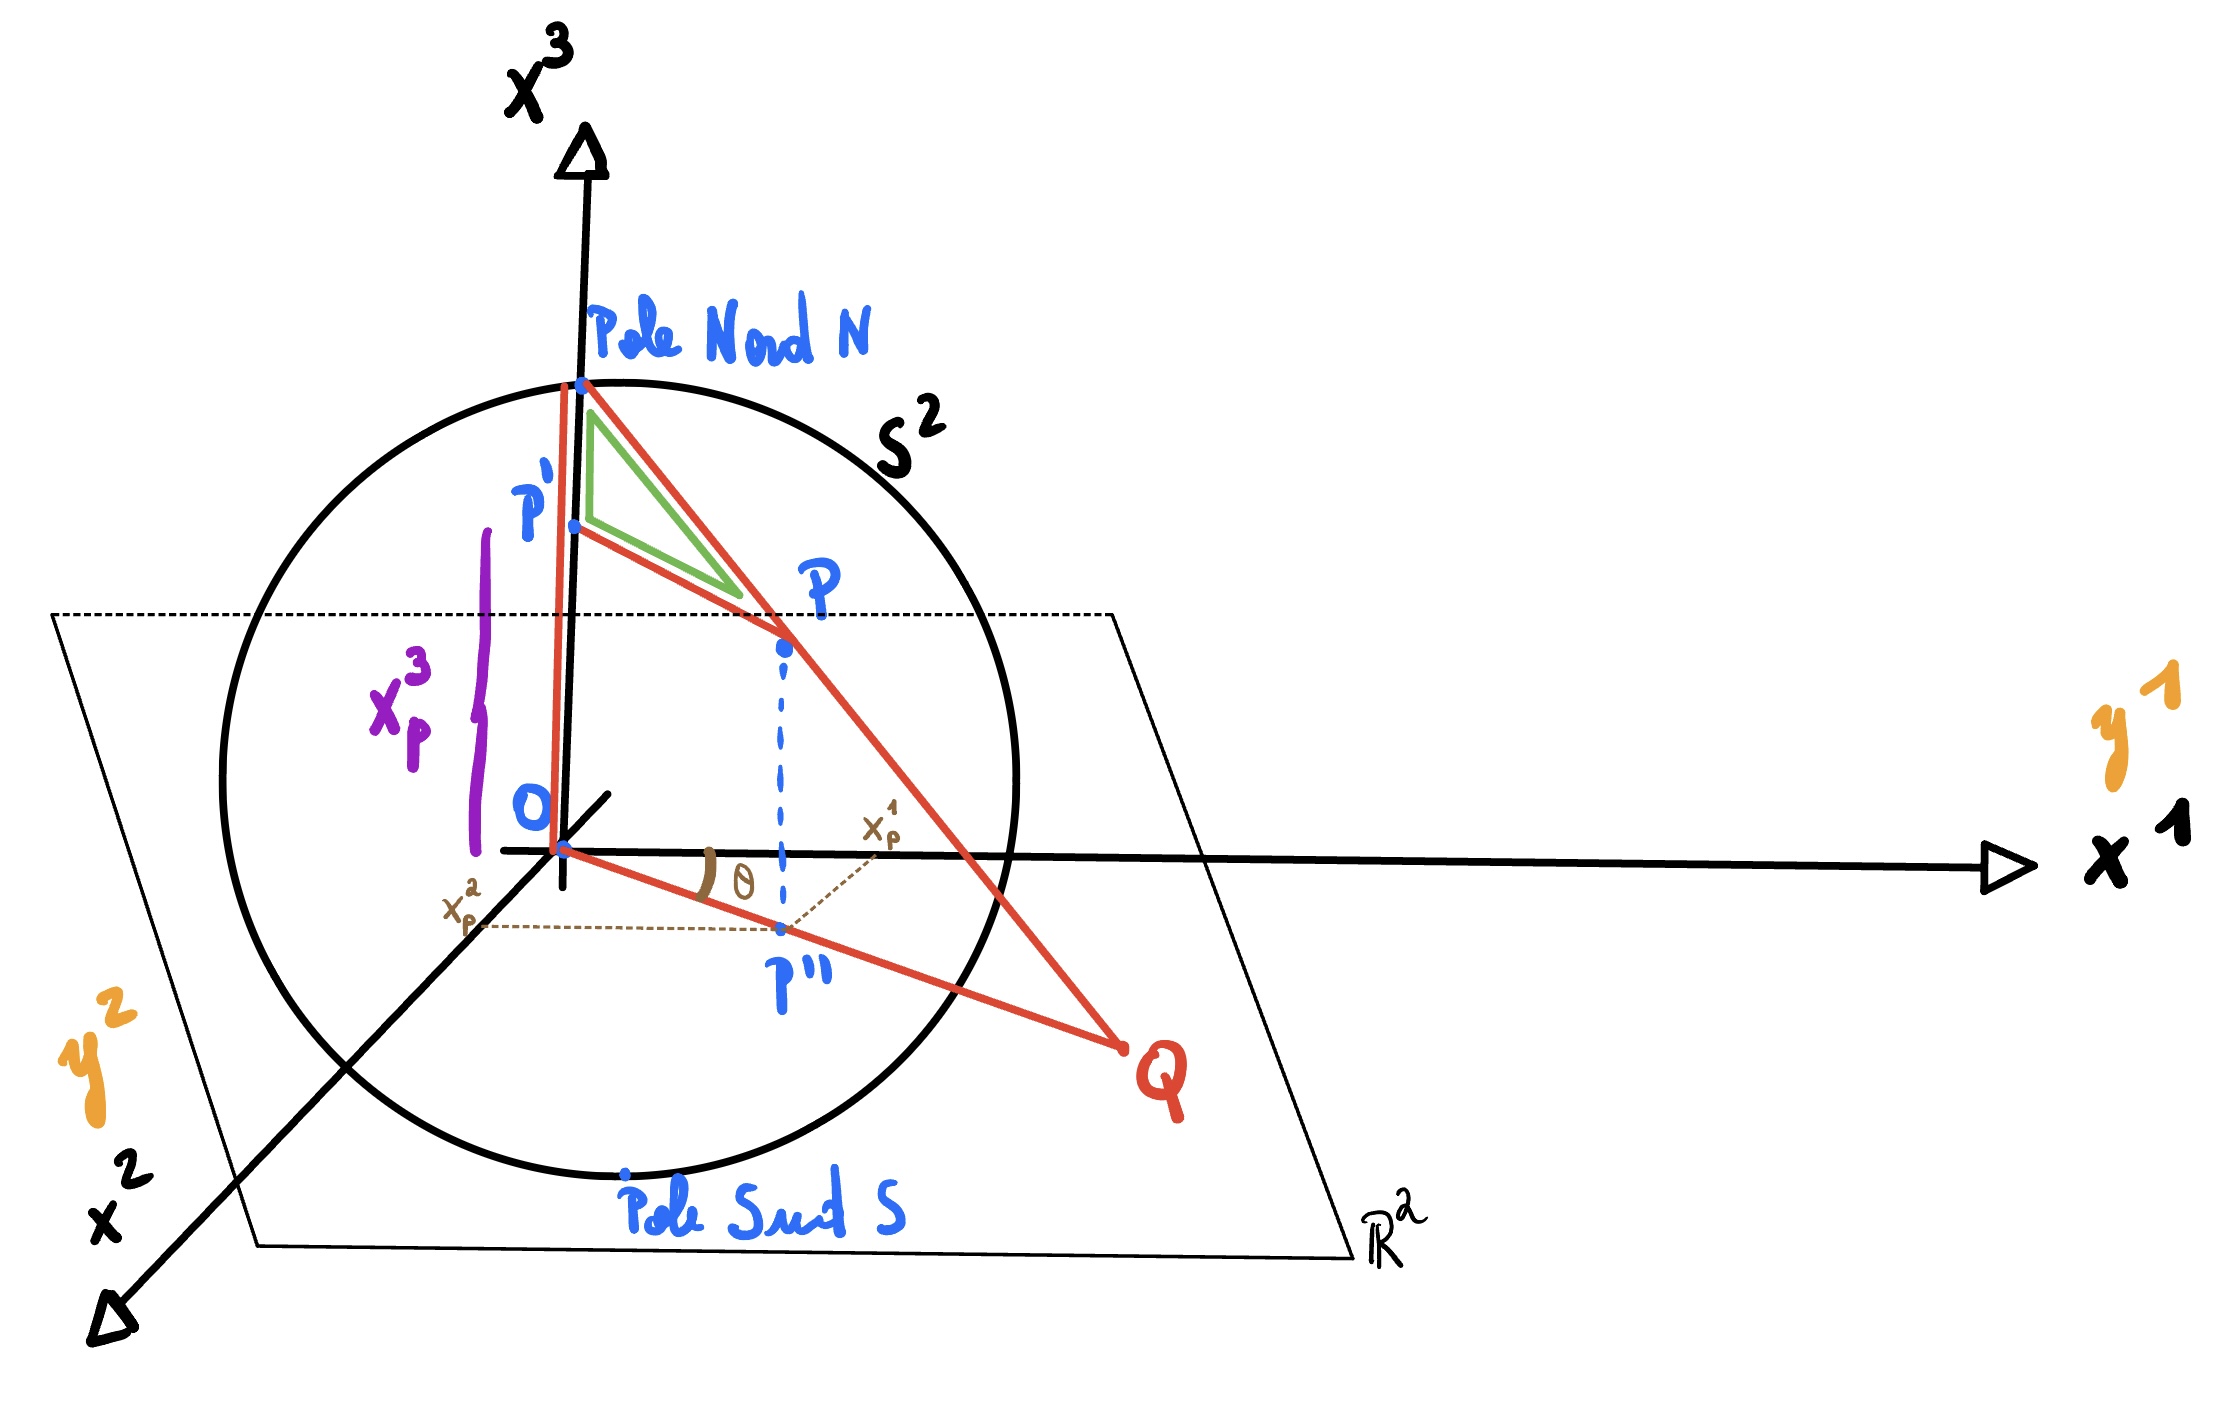 x³
Pole Nord N
S²
P'
P
x³ₚ
y¹
O
x¹ₚ
x¹
θ
x²ₚ
P''
y²
Q
x²
Pole Sud S
ℝ²